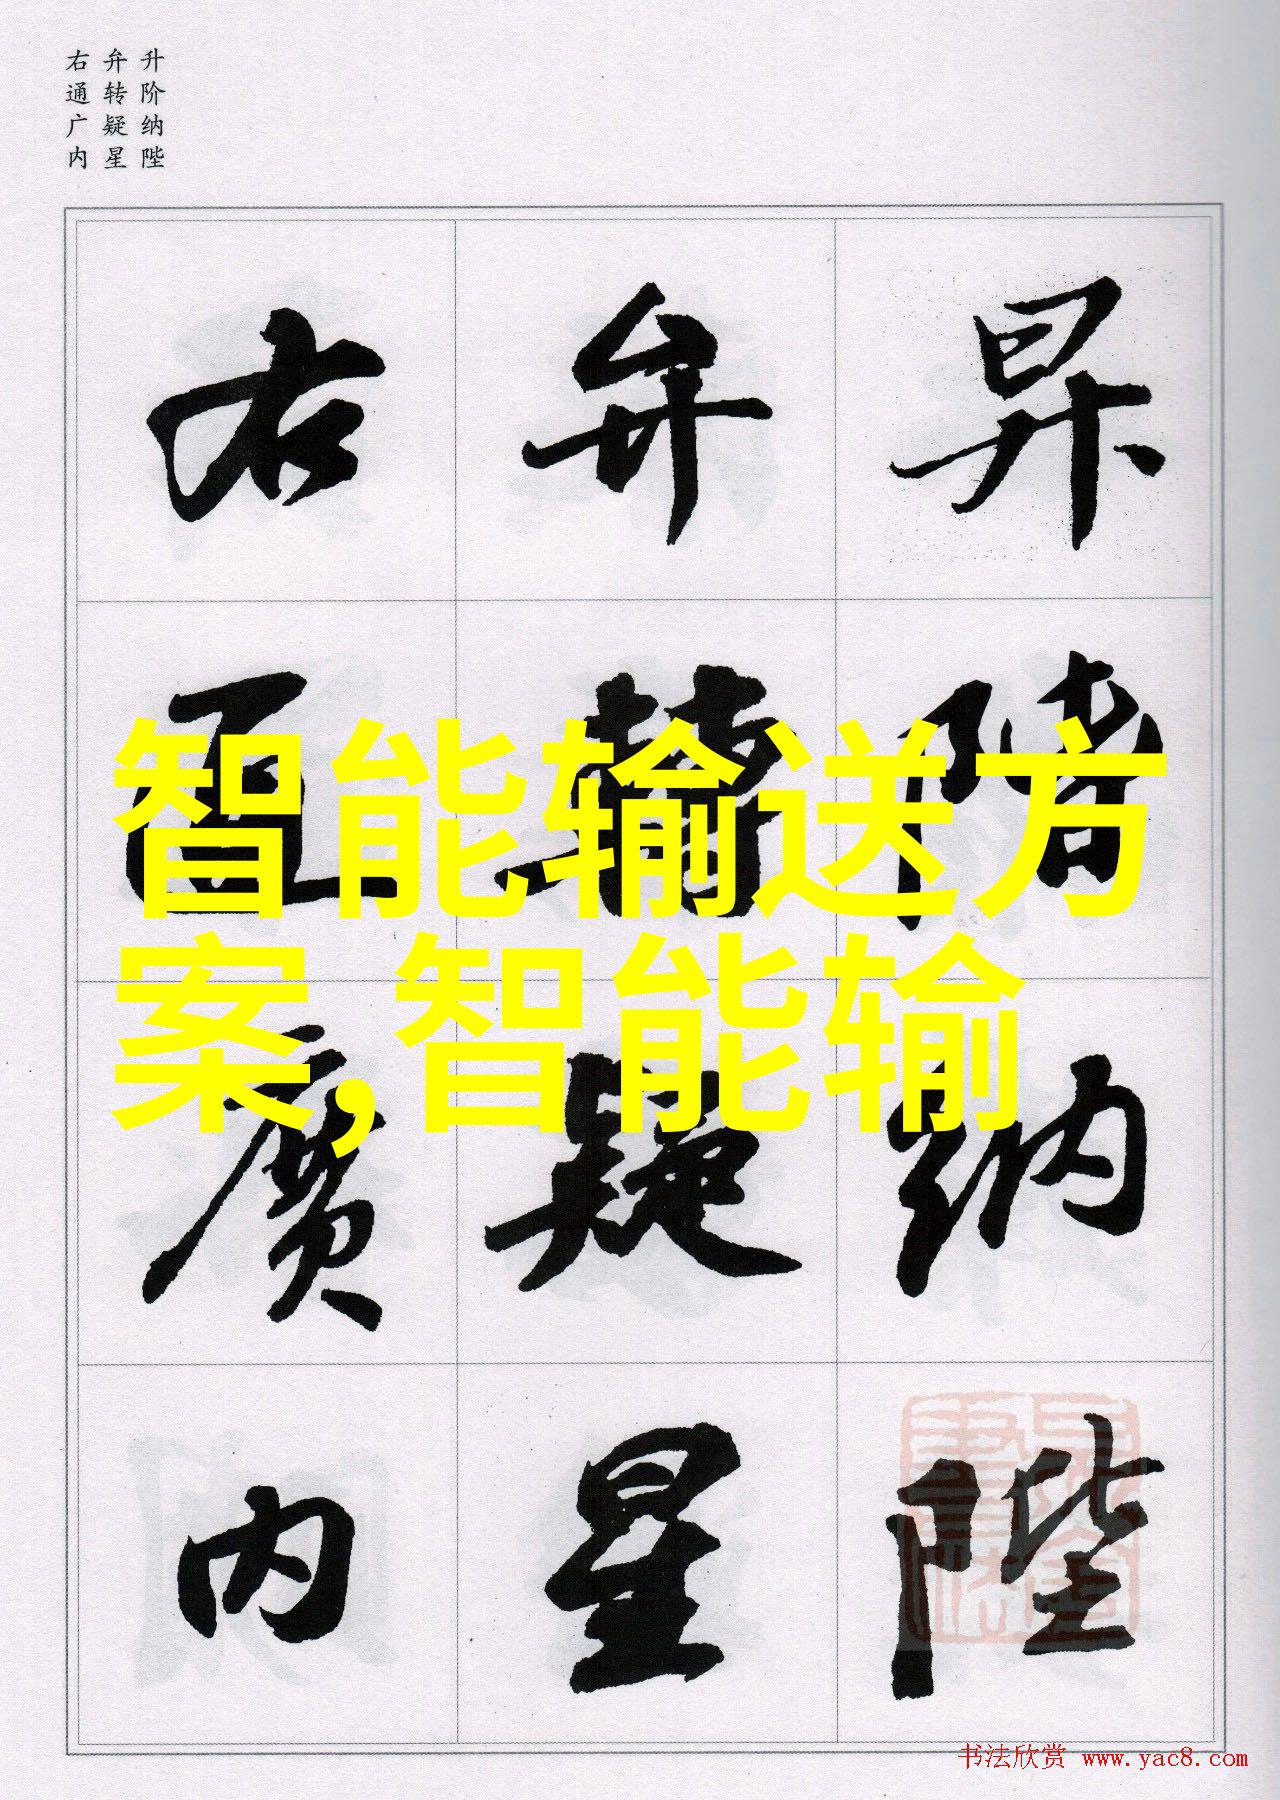 升阶纳陛
弁转疑星
右通广内
昇階納陛
弁轉疑星
右通廣内
智能输送方
案,智能输
书法欣赏 www.yac8.com